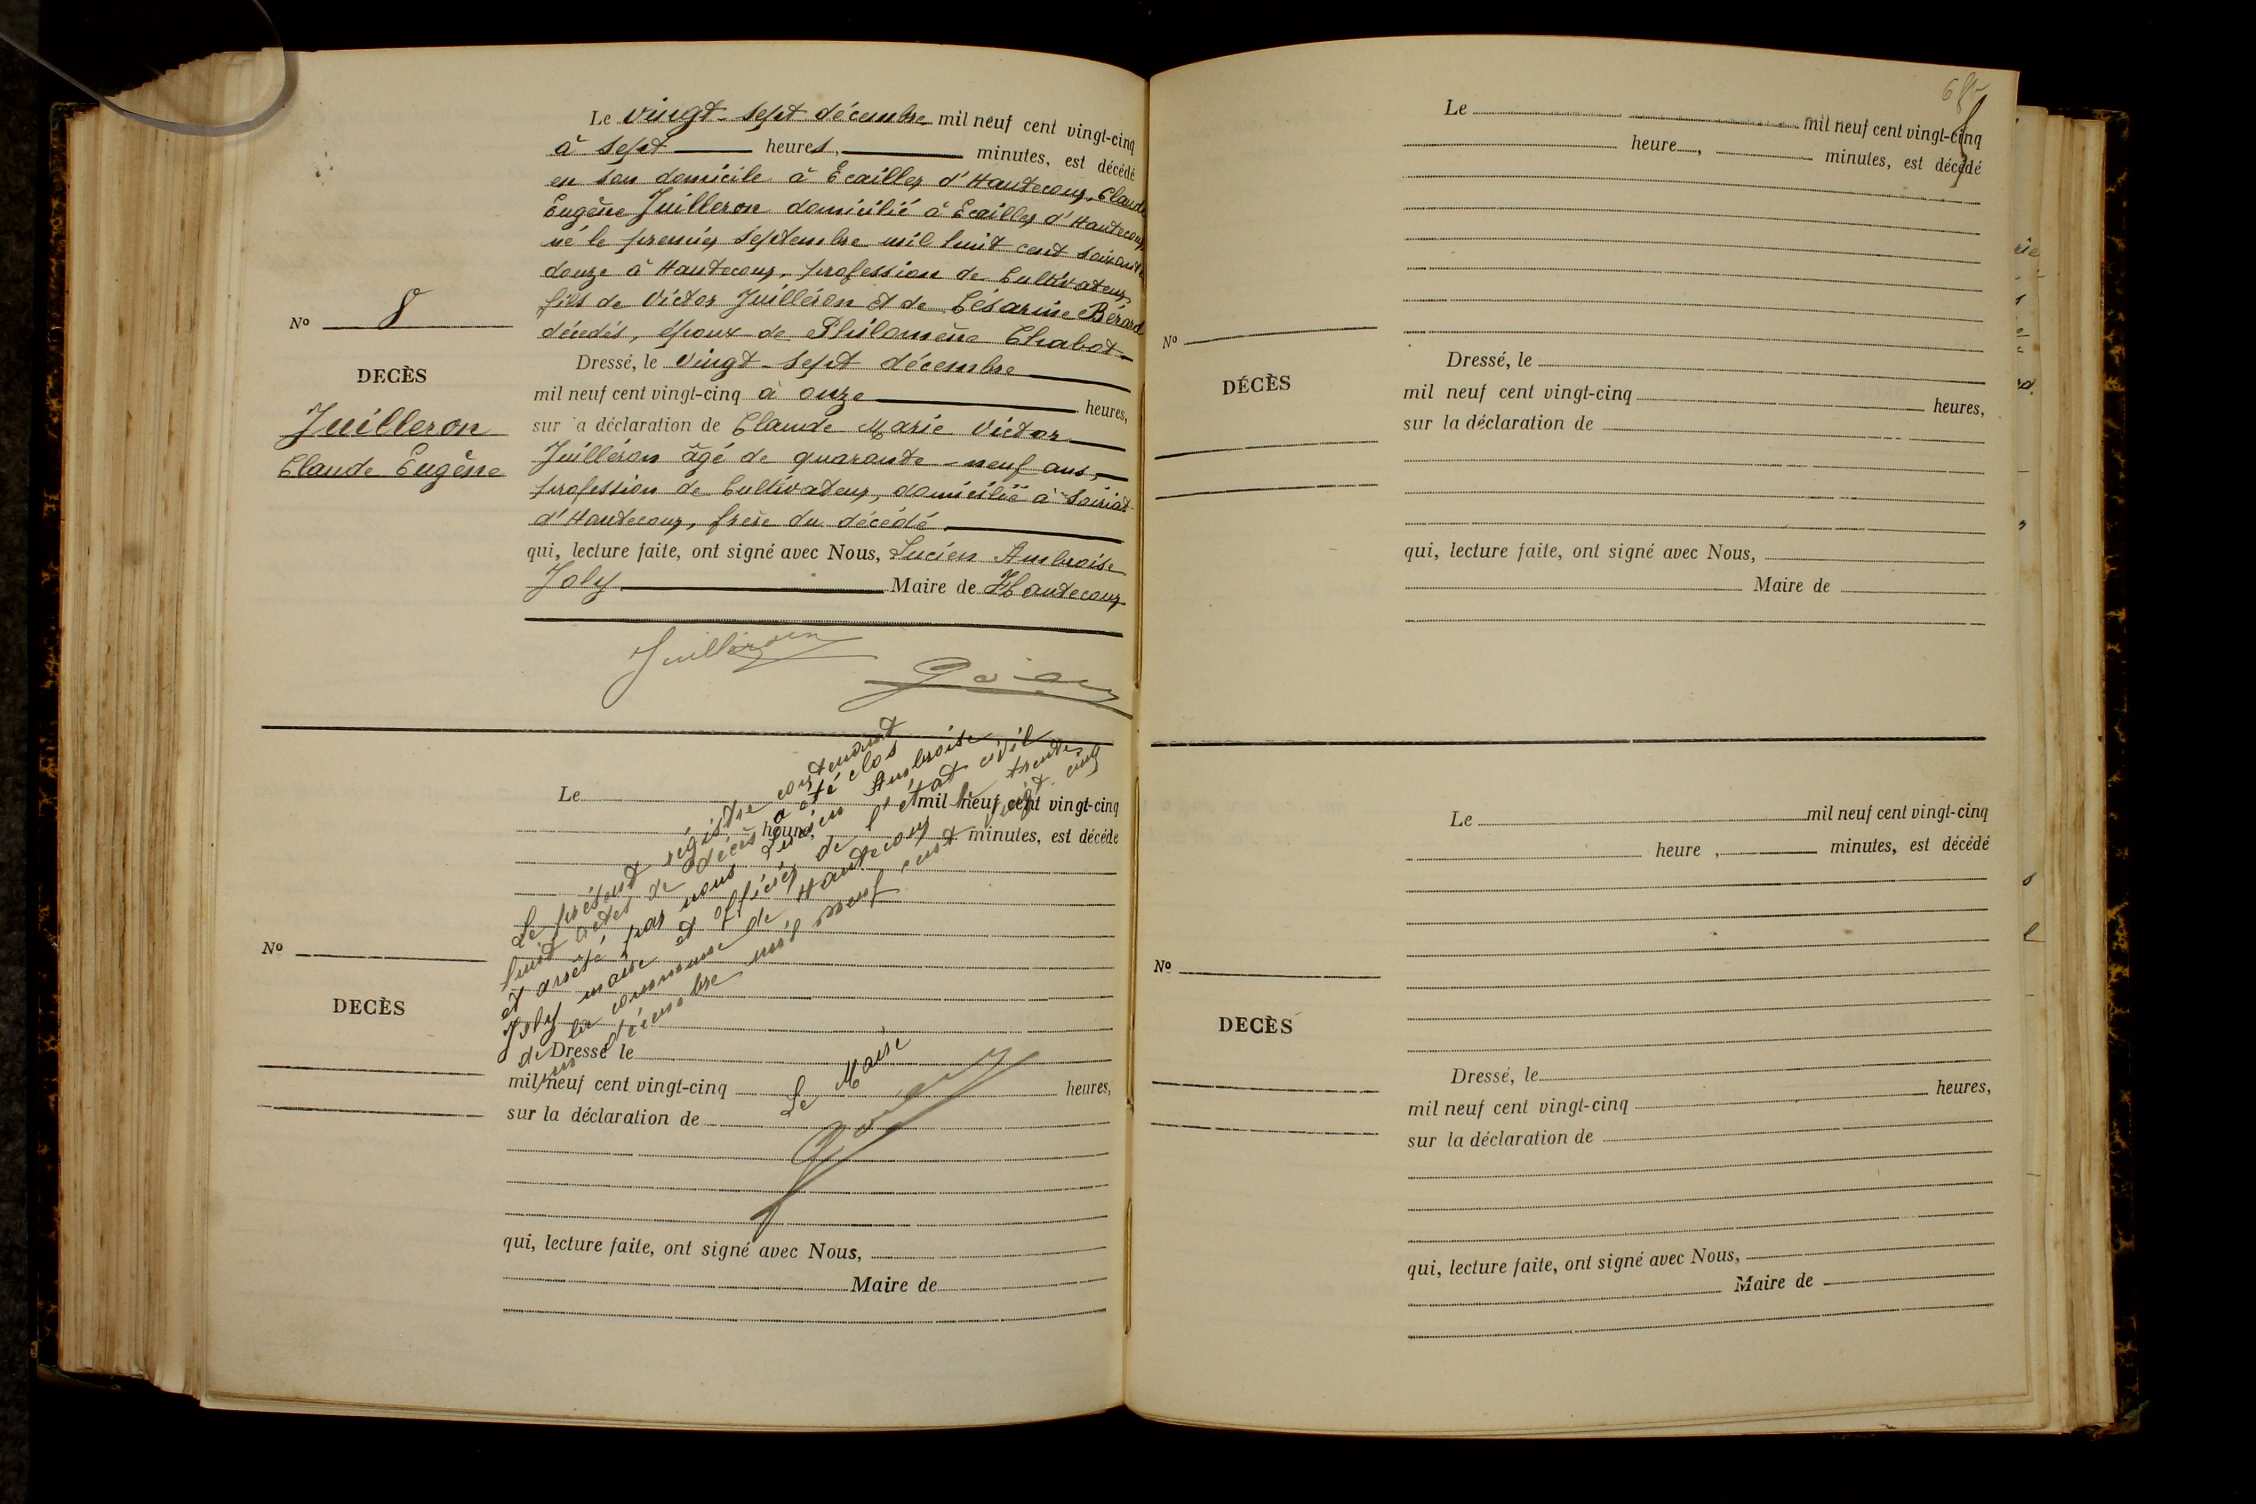 Le vingt-sept décembre mil neuf cent vingt-cinq
à sept heures, minutes, est décédé
en son domicile à Ecailles d'Hautecour, Claude
Eugène Juilleron domicilié à Ecailles d'Hautecour
né le premier septembre mil huit cent soixante
douze à Hautecour, profession de Cultivateur,
fils de Victor Juilléron et de Césarine Bérard
décedés, époux de Philomène Chabot
Dressé, le vingt-sept décembre
mil neuf cent vingt-cinq à onze heures,
sur la déclaration de Claude Marie Victor
Juilléron âgé de quarante-neuf ans,
profession de Cultivateur, domicilié à Soiriat
d'Hautecour, frère du décédé,
qui, lecture faite, ont signé avec Nous, Lucien Ambroise
Joly Maire de Hautecour
No 8
DECÈS
Juilleron
Claude Eugène
Juilléron
Le mil neuf cent vingt-cinq
heure, minutes, est décédé
Le présent régistre contenant
huit actes de décès a été clos
et arrêté par nous Lucien Ambroise
Joly maire et officier de l'état civil
de la commune de Hautecour le trente
un décembre mil neuf cent vingt cinq
Le Maire
No
DECÈS
Dressé le
mil neuf cent vingt-cinq heures,
sur la déclaration de
qui, lecture faite, ont signé avec Nous,
Maire de
68
Le mil neuf cent vingt-cinq
heure, minutes, est décédé
No
DÉCÈS
Dressé, le
mil neuf cent vingt-cinq heures,
sur la déclaration de
qui, lecture faite, ont signé avec Nous,
Maire de
Le mil neuf cent vingt-cinq
heure , minutes, est décédé
No
DECÈS
Dressé, le
mil neuf cent vingt-cinq heures,
sur la déclaration de
qui, lecture faite, ont signé avec Nous,
Maire de